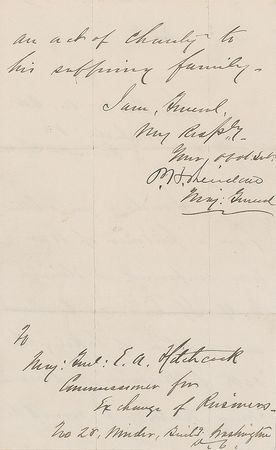 an act of charity to
his suffering family.
I am, General,
Very Respy.
Your Obdt Svt.
P. H. Sheridan
Maj: General
To
Maj: Genl: E. A. Hitchcock
Commissioner for
Exchange of Prisoners.
No 28, Winder, Build. Washington
D. C.